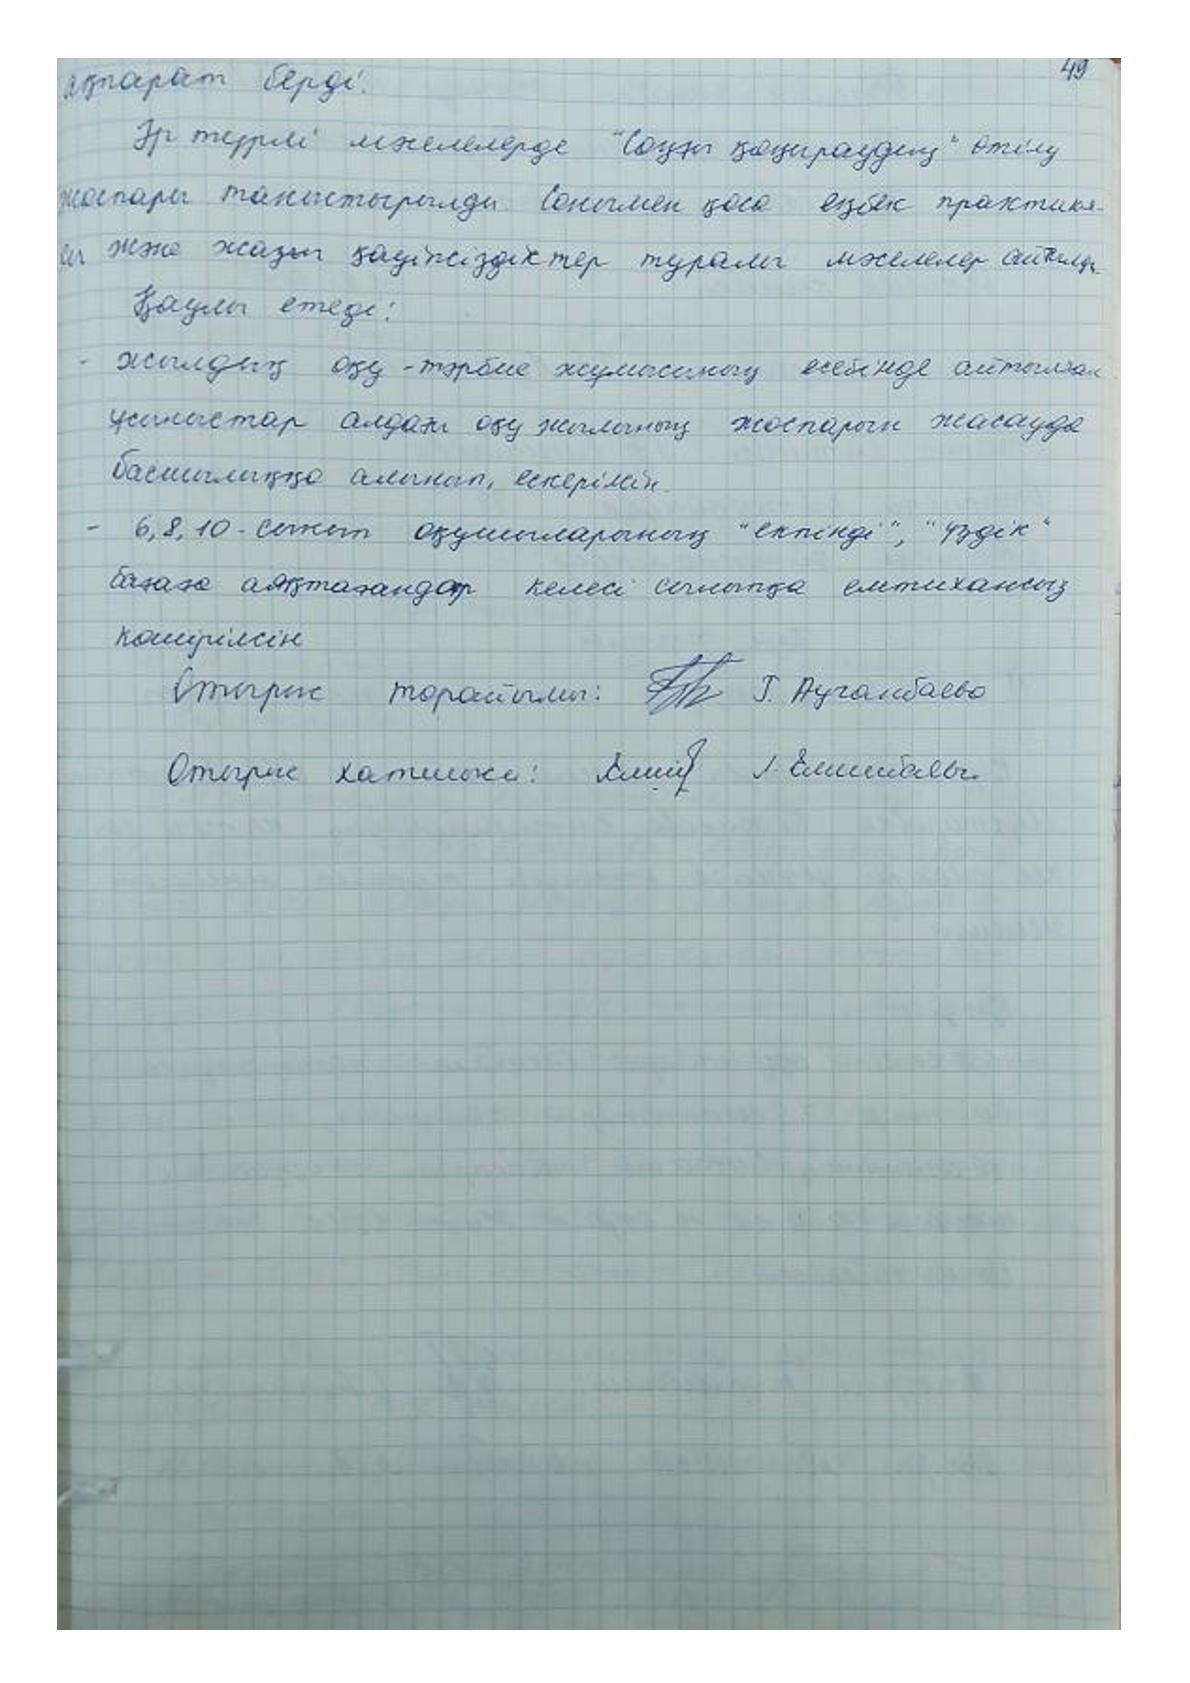 49
ақпарат берді.
Әр түрлі мәселелерде "Соңғы қоңыраудың" өтілу
жоспары таныстырылды. Сонымен қоса еңбек практика-
сы және жазғы қауіпсіздіктер туралы мәселелер айтылды
Қаулы етеді:
- жылдың оқу-тәрбие жұмысының есебінде айтылған
ұсыныстар алдағы оқу жылының жоспарын жасауда
басшылыққа алынып, ескерілсін.
- 6,8,10-сынып оқушыларының "екпінді", "үздік"
бағаға аяқтағандар келесі сыныпқа емтихансыз
көшірілсін
Отырыс төрайымы: Г. Ауганбаева
Отырыс хатшысы: